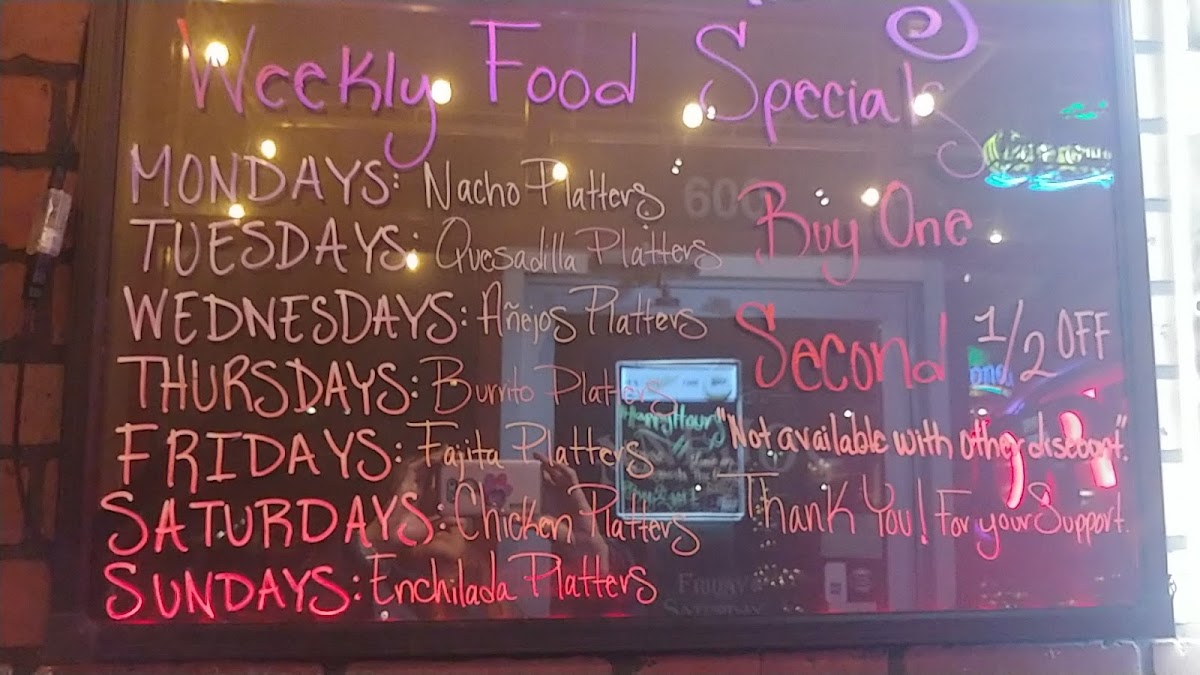 Weekly Food Specials
MONDAYS: Nacho Platters
TUESDAYS: Quesadilla Platters
WEDNESDAYS: Añejos Platters
THURSDAYS: Burrito Platters
FRIDAYS: Fajita Platters
SATURDAYS: Chicken Platters
SUNDAYS: Enchilada Platters
Buy One
Second 1/2 OFF
"Not available with other discount".
Thank You! For your Support.
600
Happy Hour
FRIDAY
SATURDAY